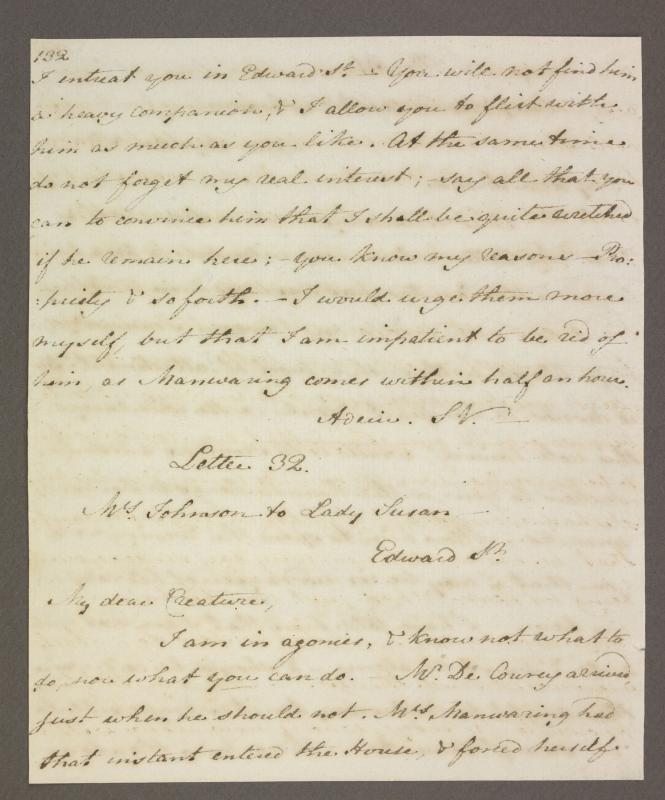 132
I intreat you in Edward St. - You will not find him
a heavy companion, & I allow you to flirt with
him as much as you like. At the same time
do not forget my real interest; - say all that you
can to convince him that I shall be quite wretched
if he remain here; - you know my reasons - Pro:
:priety & so forth. - I would urge them more
myself, but that I am impatient to be rid of
him, as Manwaring comes within half an hour.
Adeiu. SV. -
Letter 32.
Mrs. Johnson to Lady Susan -
Edward St.
My dear Creature,
I am in agonies, & know not what to
do, nor what you can do. - Mr. De Courcy arrived,
just when he should not. Mrs. Manwaring had
that instant entered the House, & forced herself